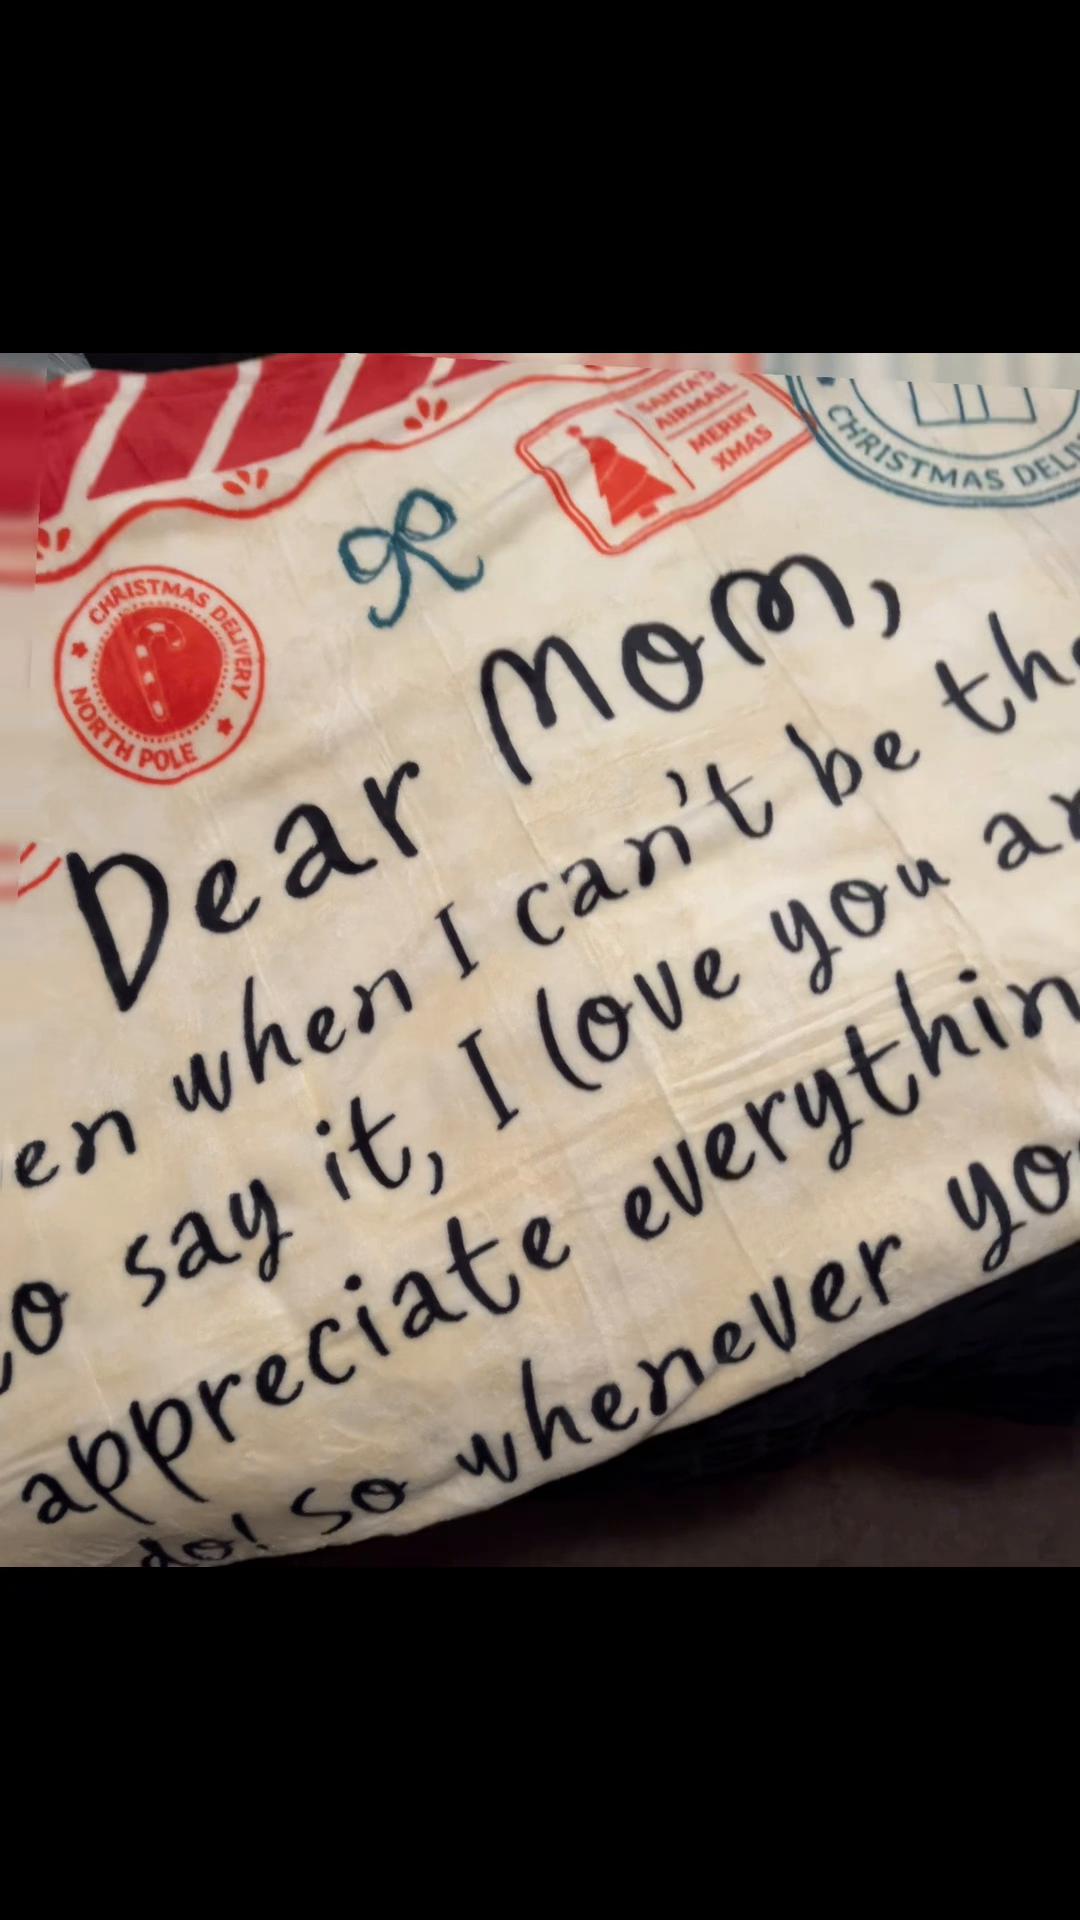 SANTA'S
AIRMAIL
MERRY
XMAS
CHRISTMAS DELI
CHRISTMAS DELIVERY
NORTH POLE
Dear Mom,
en when I can't be the
to say it, I love you an
appreciate everythin
do! So whenever yo